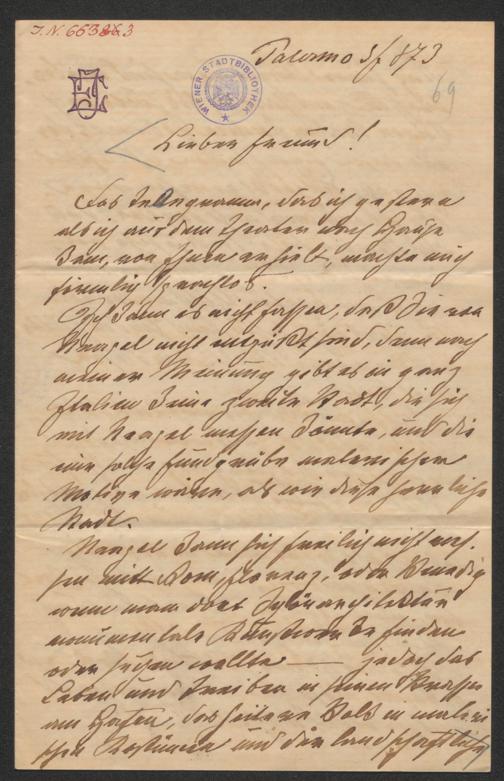 J.N. 66383
Palermo 3/ 873
69
WIENER STADTBIBLIOTHEK
Lieber Freund!
Das Telegramm, das ich gestern
als ich aus dem Theater nach Hause
kam, von Ihnen erhielt, machte mich
förmlich sprachlos.
Ich kann es nicht fassen, daß Sie von
Neapel nicht entzückt sind, denn nach
meiner Meinung gibt es in ganz
Italien keine zweite Stadt, die sich
mit Neapel messen könnte, und die
eine solche Fundgrube malerischer
Motive wäre, als wie diese herrliche
Stadt.
Neapel kann sich freilich nicht mes-
sen mitt Rom, Florenz, oder Venedig
wenn man dort Stylarchitektur
monumentale Kunstwerke finden
oder suchen wollte — jedoch das
Leben und Treiben in seinen Straßen
am Hafen, das heitere Volk in maleri
schen Kostümen und die landschaftliche